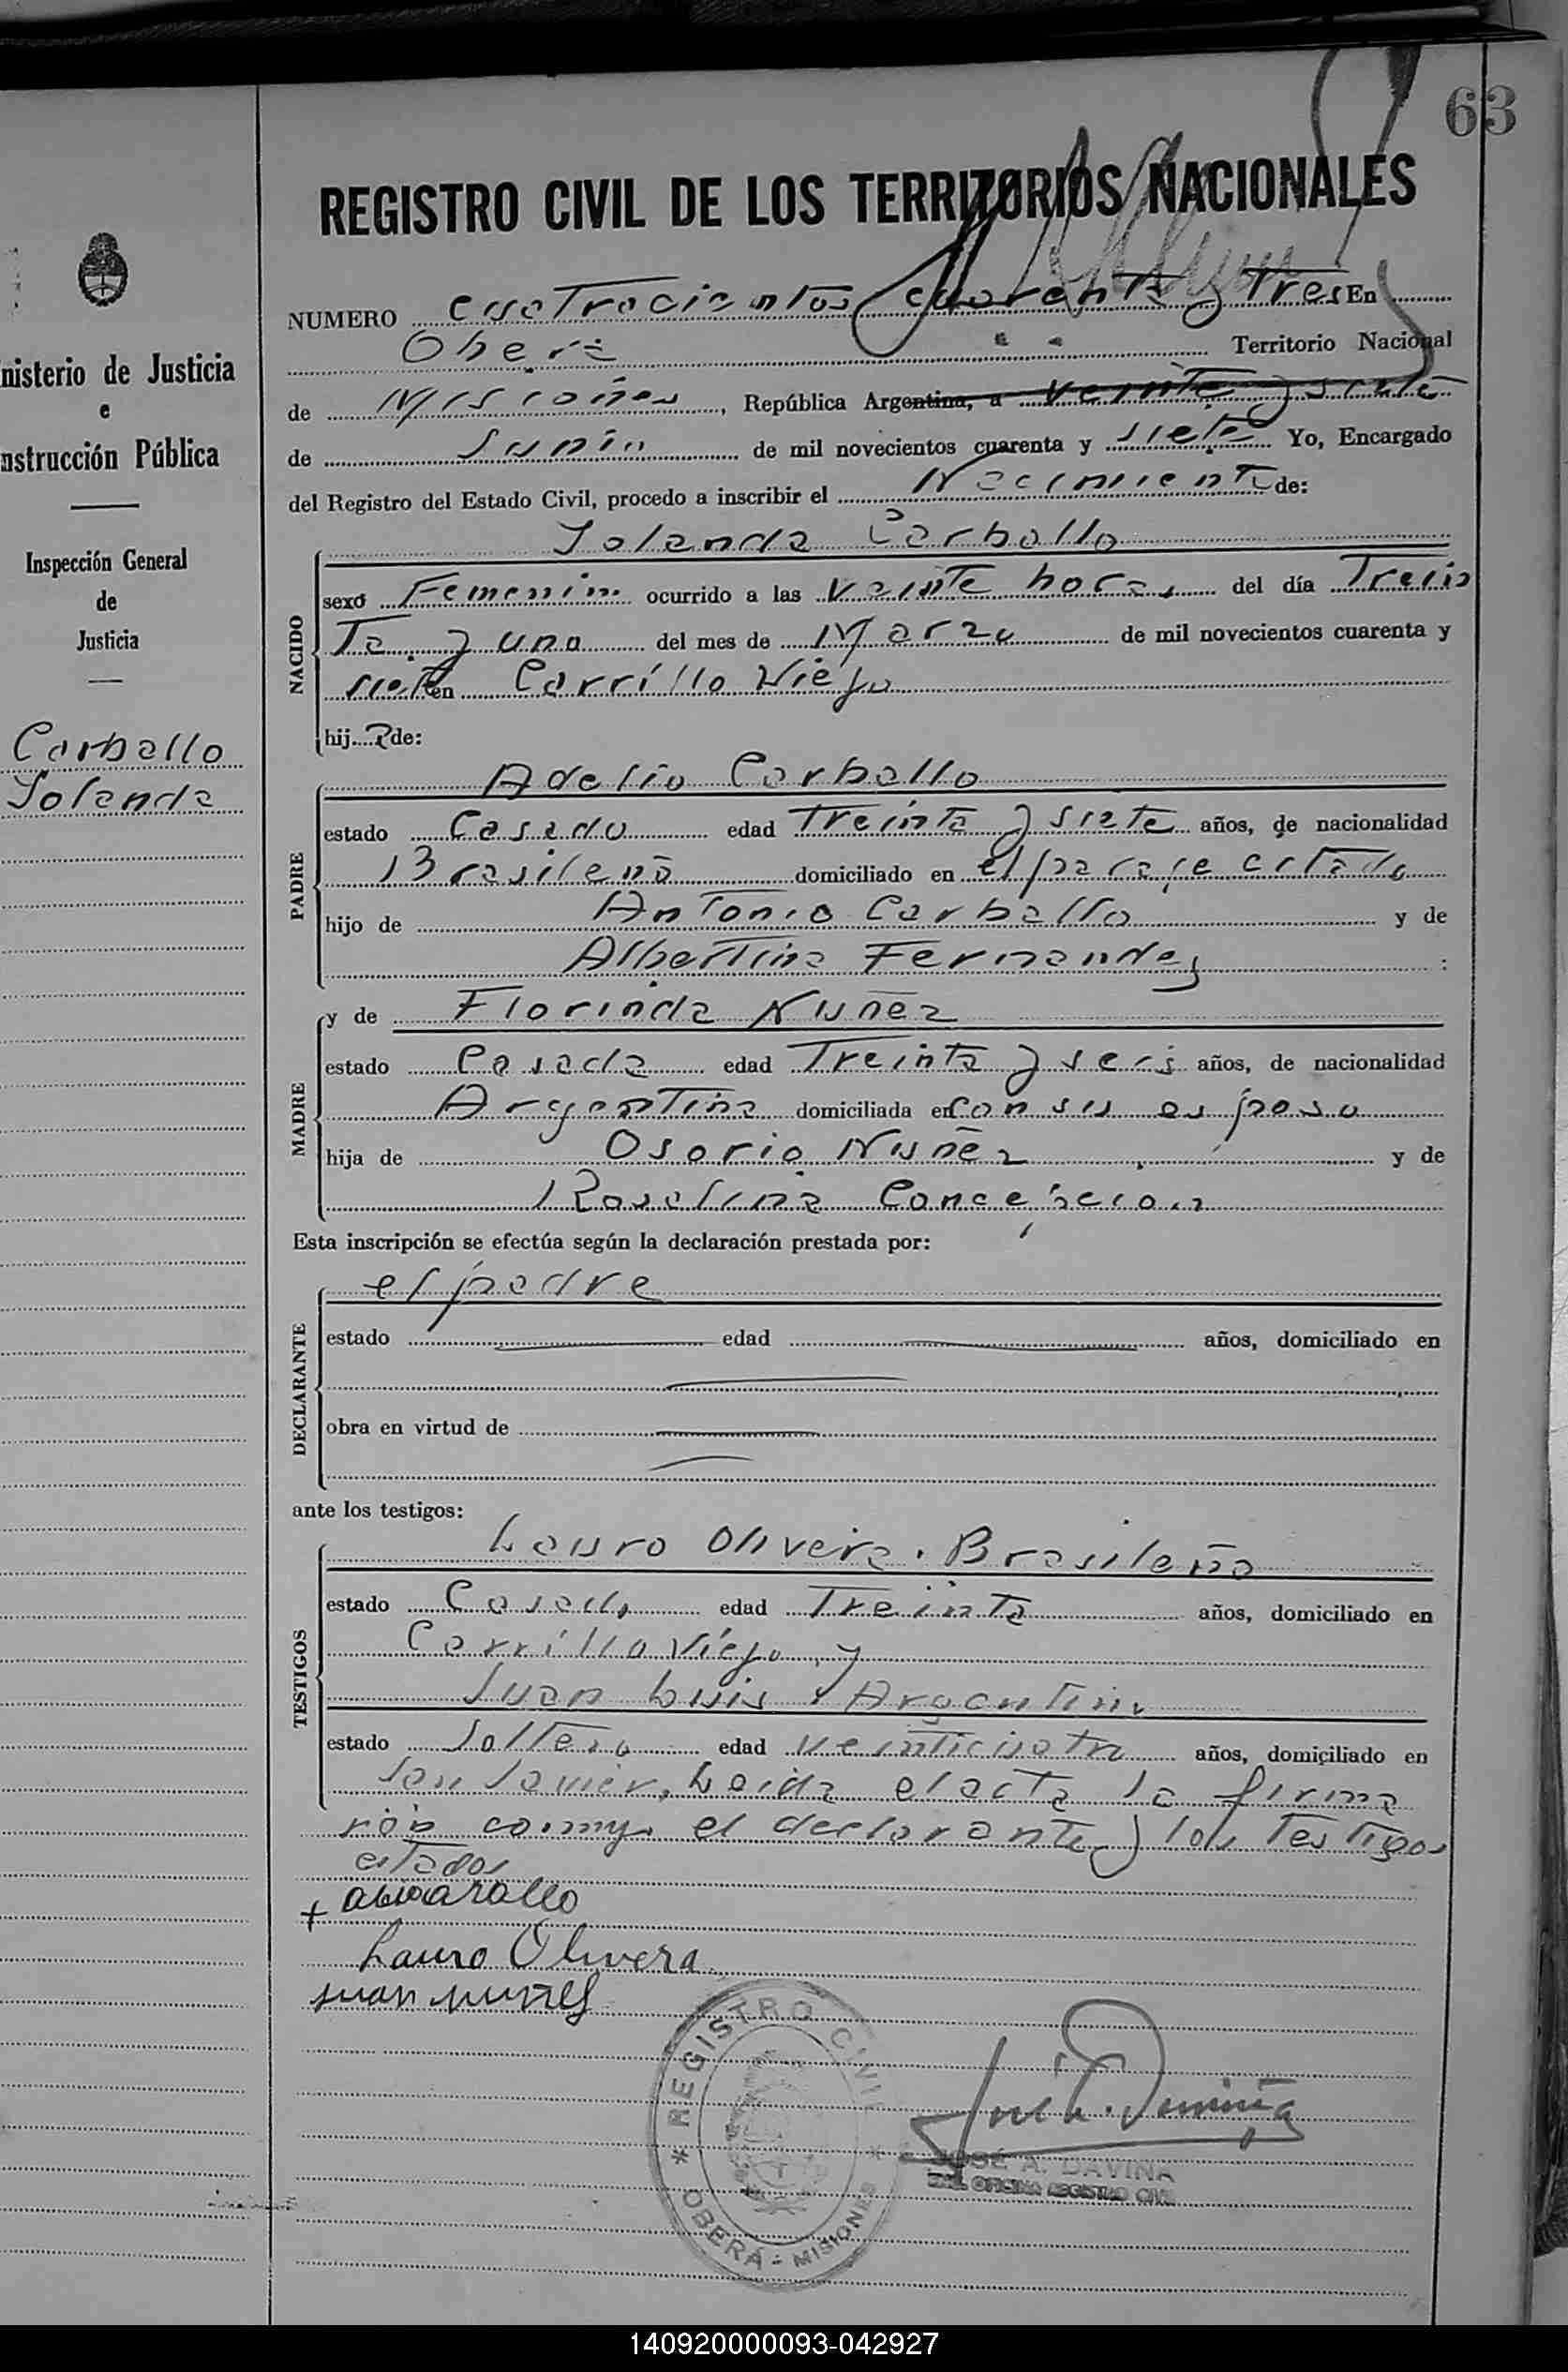 63
REGISTRO CIVIL DE LOS TERRITORIOS NACIONALES
NUMERO cuatrocientos cuarenta y Tres En
Oberá Territorio Nacional
de Misiones, República Argentina, a veinte y siete
de Junio de mil novecientos cuarenta y siete Yo, Encargado
del Registro del Estado Civil, procedo a inscribir el Nacimiento de:
NACIDO
Yolanda Carballo
sexo Femenino ocurrido a las veinte horas del día Trein
Ta y uno del mes de Marzo de mil novecientos cuarenta y
siete en Carrillo Viejo
hij a de:
PADRE
Adelio Carballo
estado Casado edad Treinta y siete años, de nacionalidad
Brasileño domiciliado en el paraje citado
hijo de Antonio Carballo y de
Albertina Fernandez :
MADRE
y de Florinda Nuñez
estado Casada edad Treinta y seis años, de nacionalidad
Argentina domiciliada en con su esposo
hija de Osorio Nuñez y de
Rosalina Concepcion
Esta inscripción se efectúa según la declaración prestada por:
DECLARANTE
el padre
estado edad años, domiciliado en
obra en virtud de
ante los testigos:
TESTIGOS
Lauro Olivera. Brasileño
estado Casado edad Treinta años, domiciliado en
Carrillo Viejo y
Juan Luis Argentino
estado Soltero edad veinticuatro años, domiciliado en
San Javier, Leida el acta la firma
rón conmigo el declarante y los Testigos
citados
Lauro Olivera
juan nuñes
REGISTRO CIVIL
OBERÁ - MISIONES
JOSÉ A. DAVIÑA
ENC. OFICINA REGISTRO CIVIL
nisterio de Justicia
e
nstrucción Pública
Inspección General
de
Justicia
Carballo
Yolanda
140920000093-042927